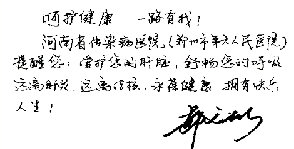 呵护健康 一路有我！
河南省传染病医院（郑州市第六人民医院）
提醒您：爱护您的肝脏，舒畅您的呼吸
远离肝炎，远离结核，永葆健康，拥有快乐
人生！